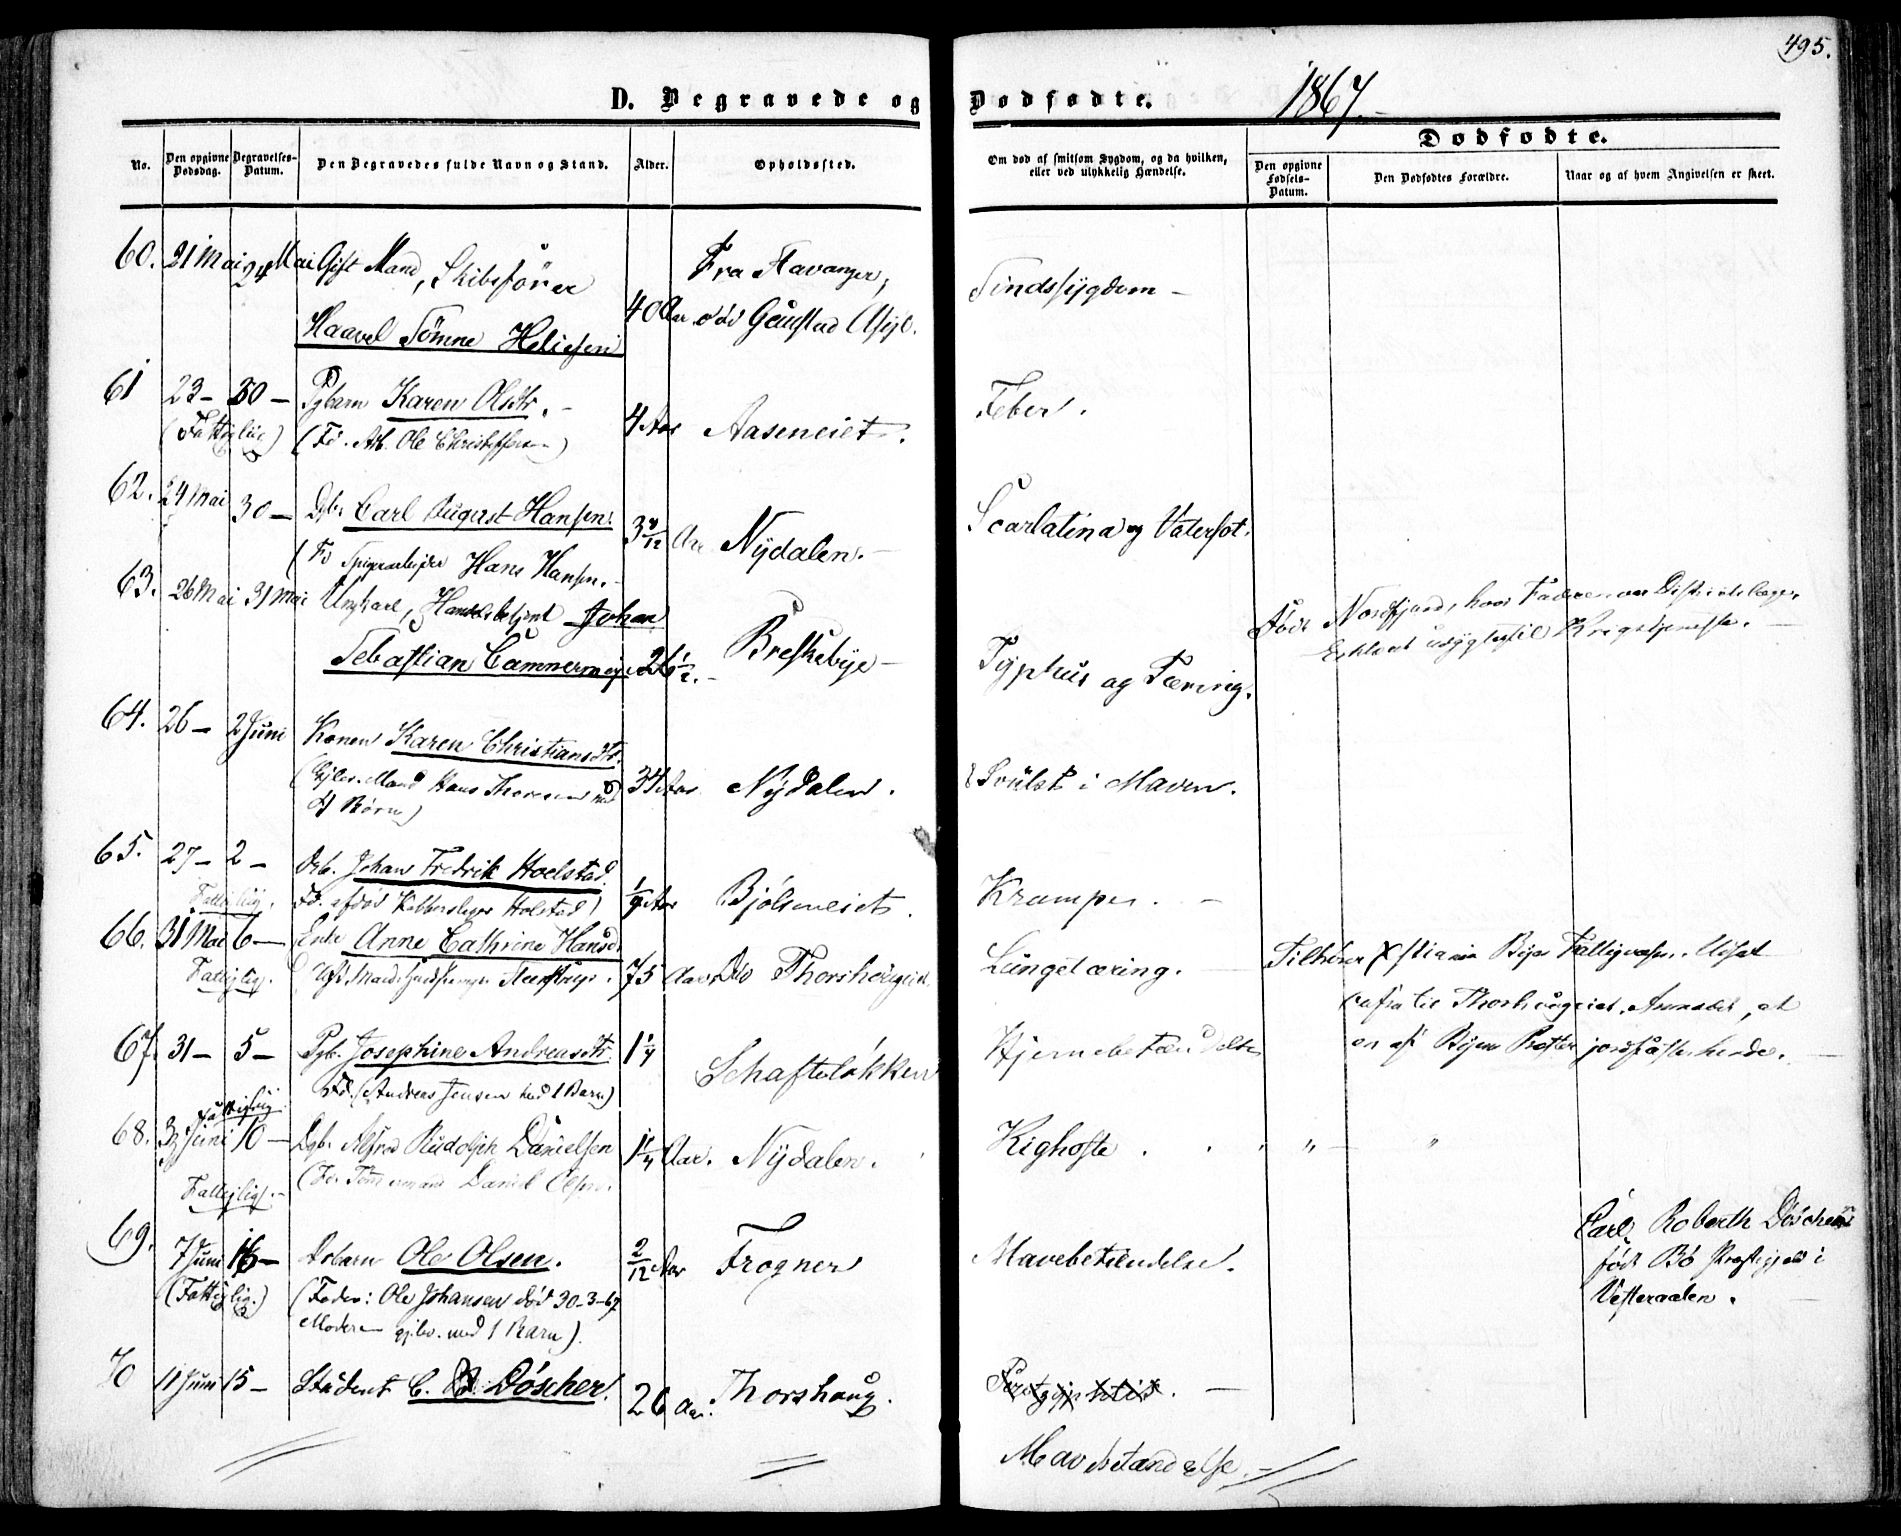 495.
D. Begravede og Dødfødte. 1867.
Dødfødte.
No. Den opgivne Dødsdag. Begravelses-Datum. Den Begravedes fulde Navn og Stand. Alder. Opholdssted. Om død af smitsom Sygdom, og da hvilken, eller ved ulykkelig Hændelse. Den opgivne Fødsels-Datum. Den Dødfødtes Forældre. Naar og af hvem Angivelsen er skeet.
60. 21 Mai 24 Mai Gift Mand, Skibsfører Fra Stavanger,
Haavel Tømne Heliesen 40 Aar død Gaustad Asyl. Sindssygdom —
61 23 — 30 — Pgbarn Karen Olsdtr. — 4 Aar Aaseneiet. Feber.
(Fattiglig) (Fd. Arb. Ole Christoffersen)
62. 24 Mai 30 — Dgb. Carl August Hansen. 3 8/12 Aar Nydalen. — Scarlatina og Vatersot.
(Fd Spigerarbeider Hans Hansen. —
63. 26 Mai 31 Mai Ungkarl, Handelsbetjent Johan
Sebastian Cammermeyer 26 1/2. — Breskebye — Typhus og Tæring. Født Nordfjord, hvor Faderen var Districtslæge.
Erklæret udygtig til Krigstjeneste. —
64. 26 — 2 Juni Konen Karen Christiansdtr.
(Gjlev. Mand Hans Thoresen med 34 Aar Nydalen. Svulst i Maven.
4 Børn)
65. 27 — 2 — Drb. Johan Fredrik Hoelstad 1/4 Aar Bjølseneiet. Kramper. —
Fattiglig. Fd. afdød Kobberslager Holstad)
66. 31 Mai 6 — Enke Anne Cathrine Hansd. 75 Aar Død Thorshougeiet. Lungetæring. Tilhører Xstiania Byes Fattigvæsen. Udsat
Fattiglig.
derfra til Thorshougeiet. Anmeldt, at
en af Byens Præster jordfæster hende. —
67. 31 — 5 — Pgb. Josephine Andreasdtr. 1 1/4 Schafteløkken Hjernebetændelse
Fattiglig. Fd. (Andreas Jensen med 1 Barn)
68. 3 Juni 10 — Dgb. Alfred Rudolph Danielsen 1 1/4 Aar. Nydalen. Kighoste. " — "
Fattiglig. — (Fd. Tømmermand Daniel Olsen.
69. 7 Juni 16 — Drbarn Ole Olsen. 2/12 Aar Frogner Mavebetændelse.
(Fattiglig.) (Fader: Ole Johansen død 30-3-67
Moderen gjlev. med 1 Barn).
Carl Roberth Døscher
født Bø Præstegjeld i
Vesteraalen.
70 11 Juni 15 — Student C. R. Døscher. 26 Aar. Thorshaug.
Mavebetændelse. —